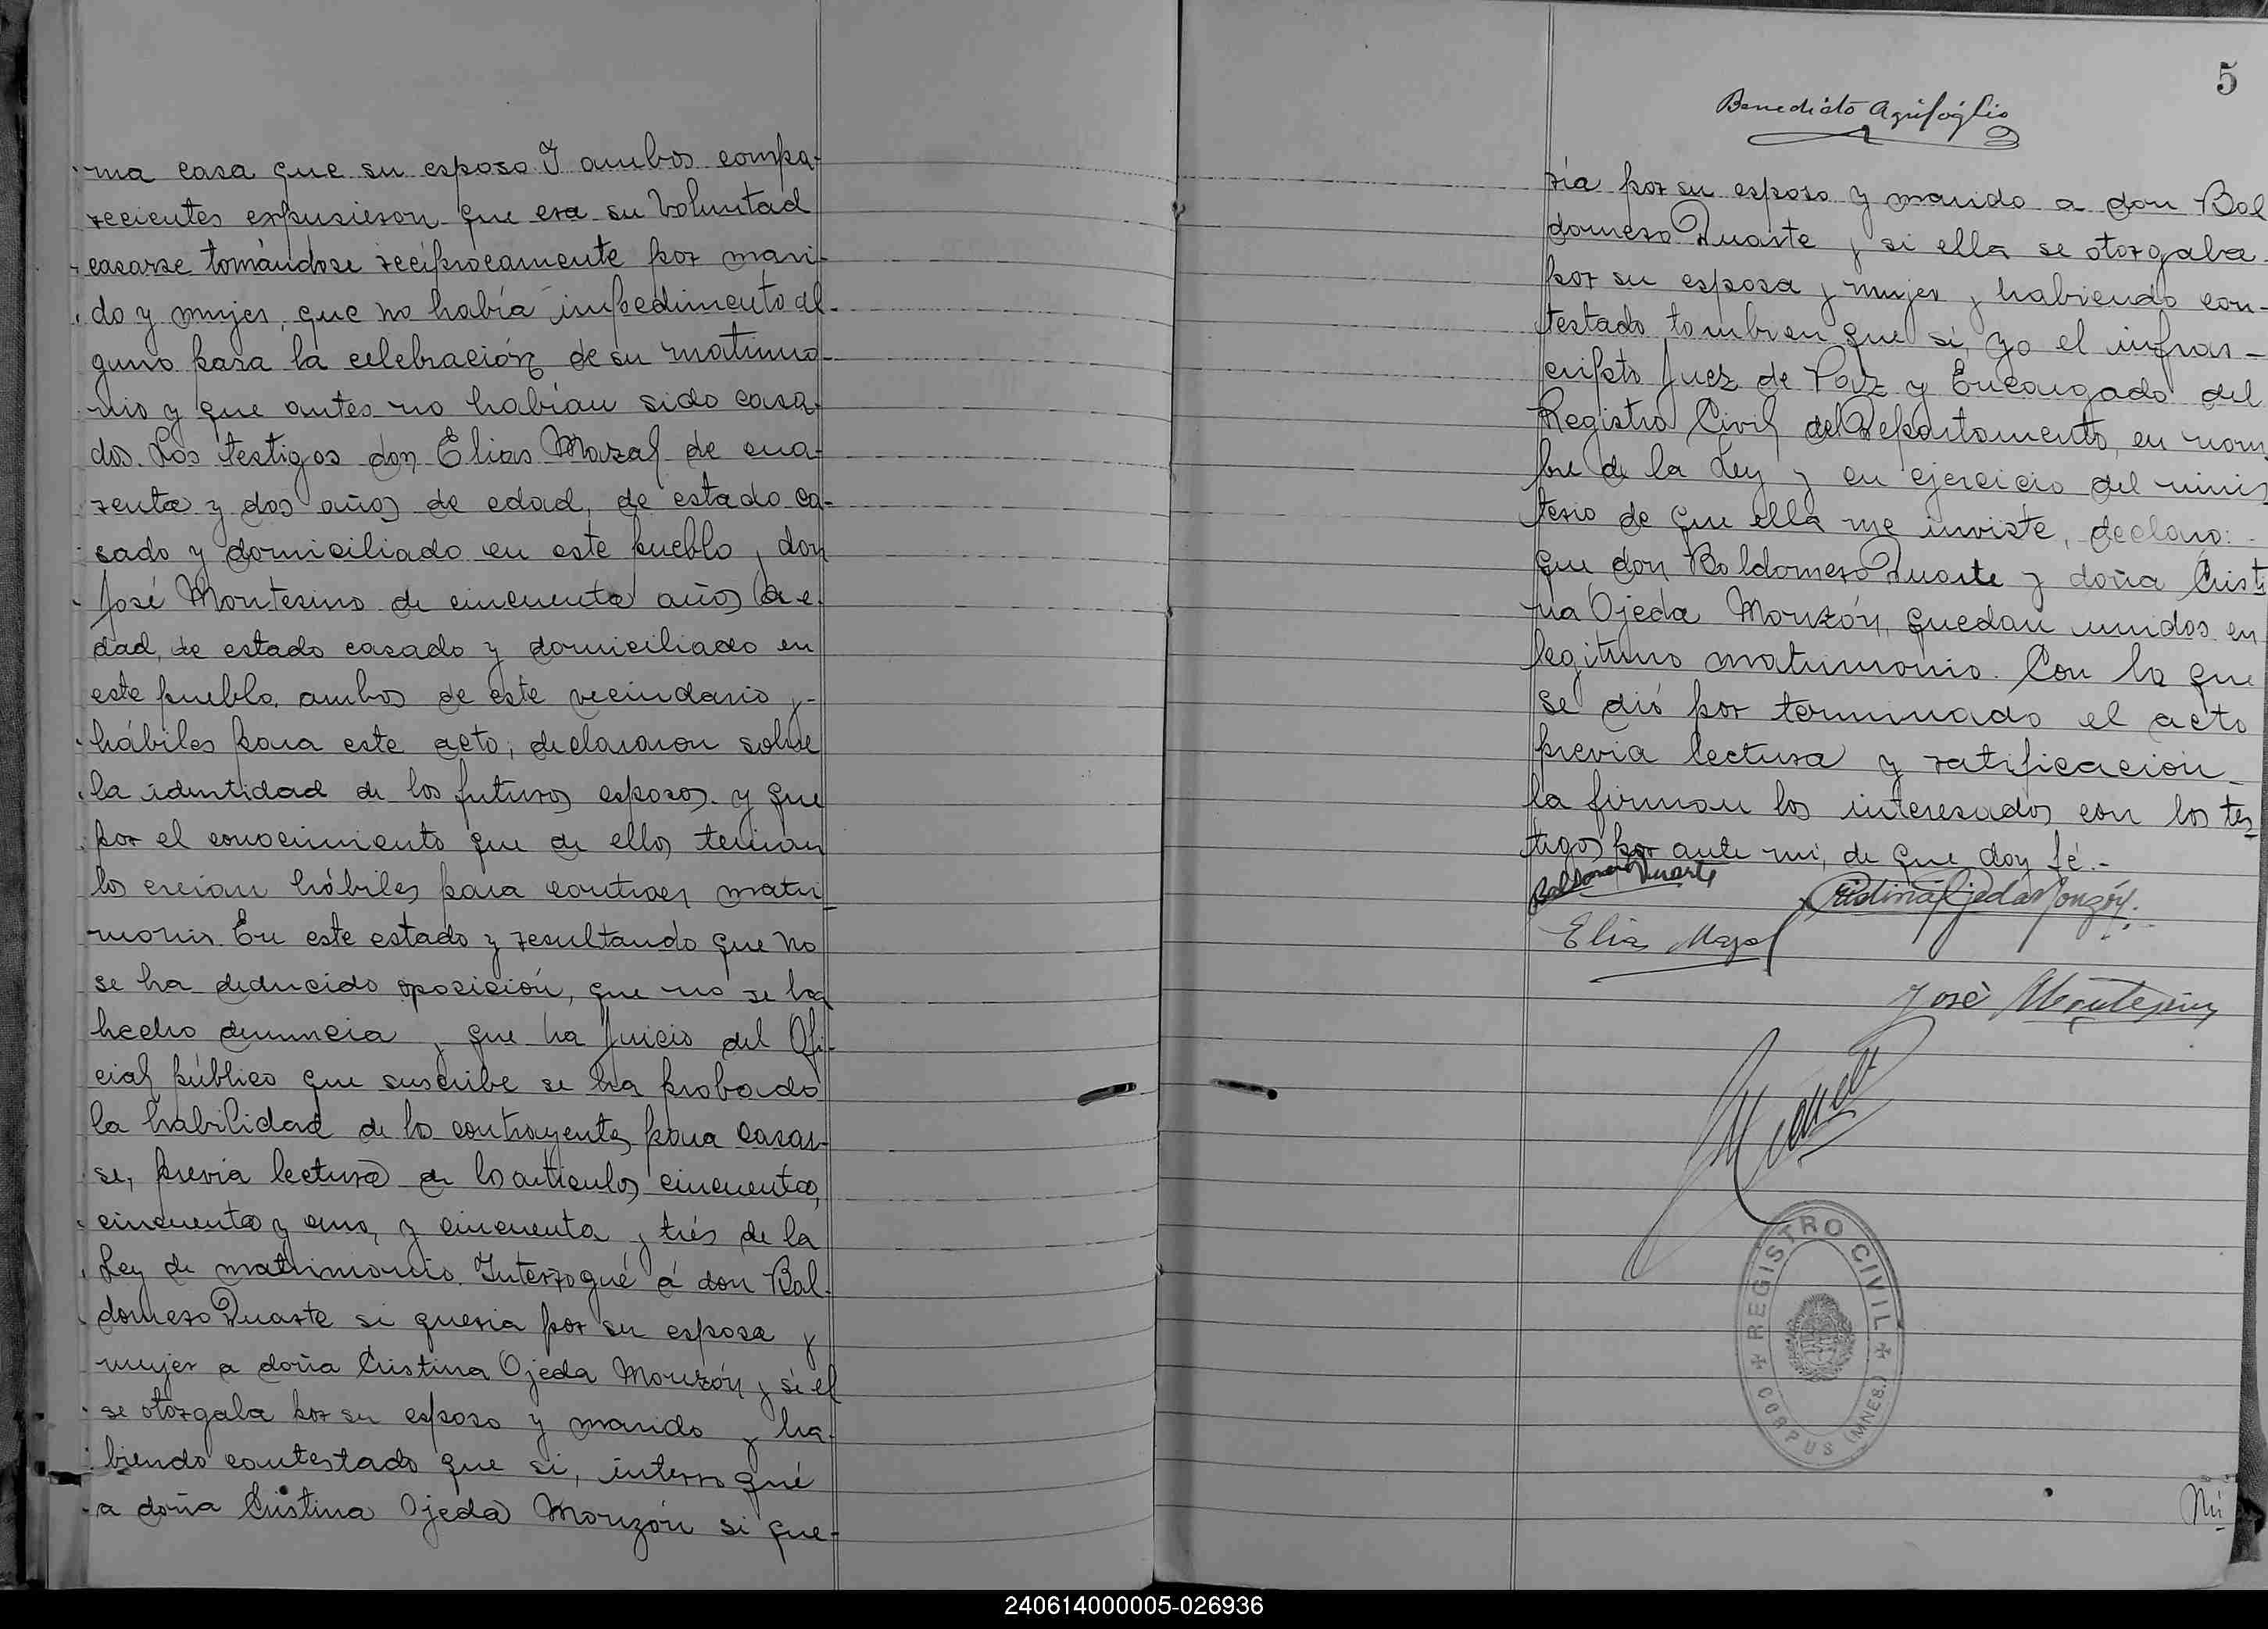 ma casa que su esposo Y ambos compa-
recientes expusieron que era su voluntad
casarse tomándose recíprocamente por mari-
do y mujer, que no había impedimento al-
guno para la celebración de su matrimo-
nio y que antes no habían sido casa-
dos. Los testigos don Elias Mazal de cua-
renta y dos años de edad, de estado ca-
sado y domiciliado en este pueblo y don
José Montesino de cincuenta años de e-
dad, de estado casado y domiciliado en
este pueblo, ambos de este vecindario y-
hábiles para este acto, declararon sobre
la identidad de los futuros esposos y que
por el conocimiento que de ellos tenian
los creian hábiles para contraer matri-
monio. En este estado y resultando que no
se ha deducido oposición, que no se ha
hecho denuncia y que ha juicio del Ofi-
cial público que suscribe se ha probado
la habilidad de lo contrayentes para casar-
se, previa lectura de lo articulos cincuenta,
cincuenta y uno, y cincuenta y trés de la
Ley de matrimonio. Interrogué á don Bal-
domero Duarte si queria por su esposa y
mujer a doña Cristina Ojeda Monzón y si el
se otorgaba por su esposo y marido y ha-
biendo contestado que si, interrogué
a doña Cristina Ojeda Monzón si que-
5
Benedicto Agrifóglio
ría por su esposo y marido a don Bal
domero Duarte y si ella se otorgaba
por su esposa y mujer y habiendo con-
testado tambien que si, yo el infras-
cripto Juez de Paz y Encargado del
Registro Civil del Departamento, en nom
bre de la Ley y en ejercicio del minis
terio de que ella me inviste, declaro:
que don Baldomero Duarte y doña Cristi
na Ojeda Monzón, quedan unidos en
legitimo matrimonio. Con lo que
se dió por terminado el acto
previa lectura y ratificacion
la firman los interesados con los tes-
tigos por ante mi, de que doy fé.-
Baldomero Duarte
Cristina Ojeda Monzón.
Elias Mazal
José Montesino
REGISTRO CIVIL
CORPUS (MNES.)
Nú
240614000005-026936